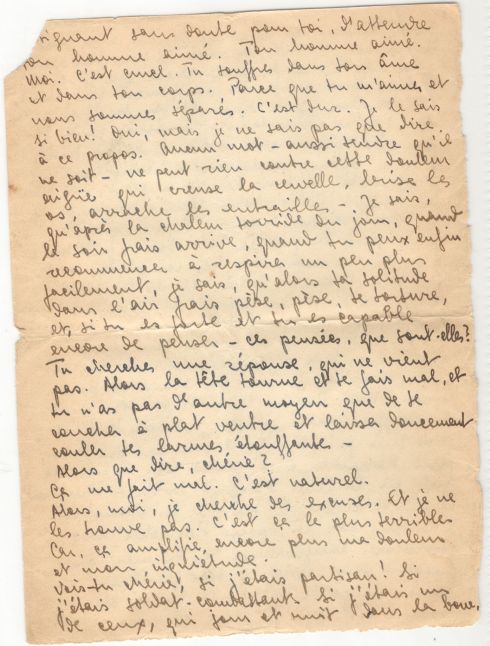 signant sans doute pour toi, d'attendre
ton homme aimé. Ton homme aimé.
Moi. C'est cruel. Tu souffres dans ton âme
et dans ton corps. Parce que tu m'aimes et
nous sommes séparés. C'est dur. Je le sais
si bien! Oui, mais je ne sais pas que dire
à ce propos. Aucun mot - aussi tendre qu'il
ne soit - ne peut rien contre cette douleur
aigüe qui creuse la cervelle, brise les
os, arrache les entrailles - Je sais,
qu'après la chaleur torride du jour, quand
le soir frais arrive, quand tu peux enfin
recommencer à respirer un peu plus
facilement, je sais, qu'alors ta solitude
dans l'air frais pèse, pèse, te torture,
et, si tu es forte et tu es capable
encore de penser - ces pensées, que sont-elles?
Tu cherches une réponse, qui ne vient
pas. Alors la tête tourne et te fais mal, et
tu n'as pas d'autre moyen que de te
coucher à plat ventre et laisser doucement
couler tes larmes étouffantes -
Alors que dire, chérie?
Ça me fait mal. C'est naturel.
Alors, moi, je cherche des excuses. Et je ne
les trouve pas. C'est ça le plus terrible
Car, ça amplifie, encore plus ma douleur
et mon inquiétude.
Vois-tu chérie, si j'étais partisan! Si
j'étais soldat-combattant. Si j'étais un
de ceux, qui jour et nuit dans la boue,